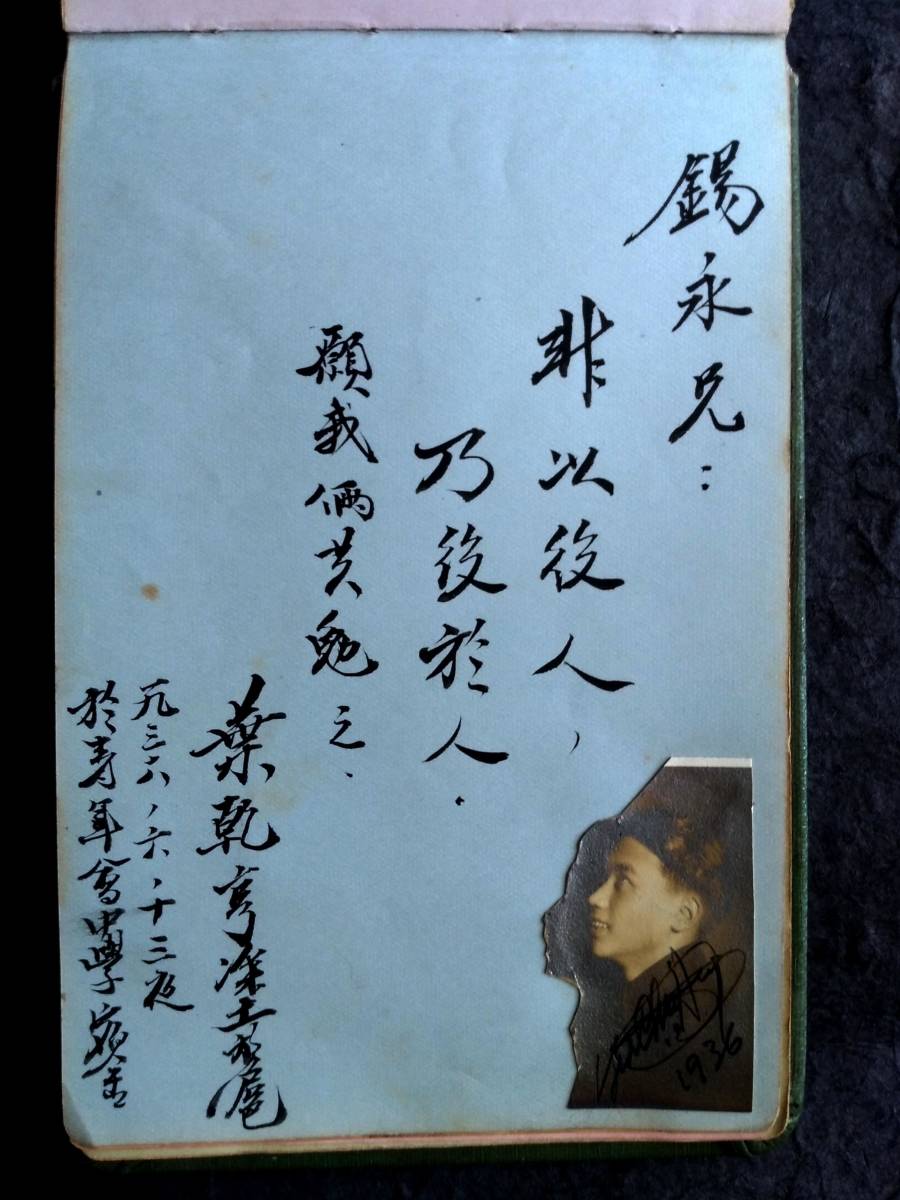 錫永兄：
非以役人，
乃役於人．
願我倆共勉之．
葉乾亨
一九三六、六、十三夜
於青年會中學宿舍
1936